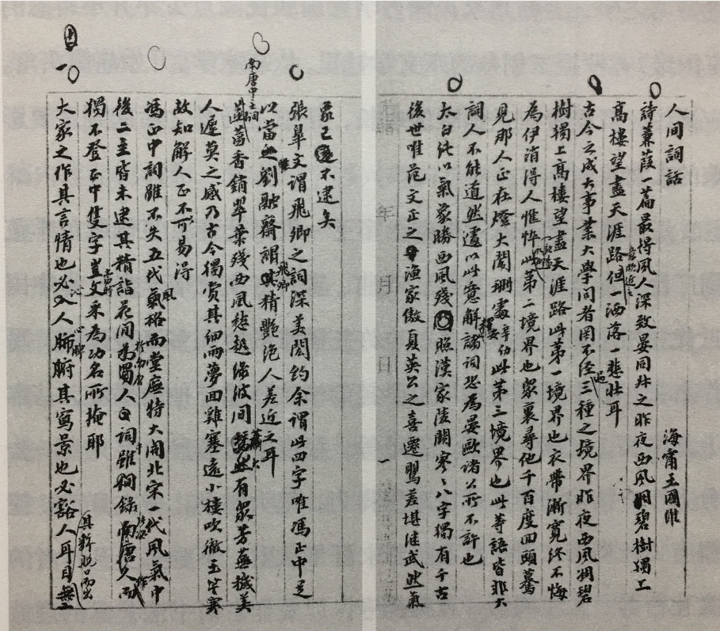 人间詞話
海甯王國維
詩蒹葭一篇最得風人深致晏同叔之昨夜西風凋碧樹獨上
高樓望盡天涯路意頗近之但一洒落一悲壯耳
古今之成大事業大學問者罔不經過三種之境界昨夜西風凋碧
樹獨上高樓望盡天涯路此第一境界也衣帶漸寬終不悔
為伊消得人憔悴此第二境界也衆裏尋他千百度回頭驀
見那人正在燈火闌珊處辛幼安此第三境界也此等語皆非大
詞人不能道然遽以此意解釋諸詞恐為晏歐諸公所不許也
太白純以氣象勝西風殘照漢家陵闕寥寥八字獨有千古
後世唯范文正之漁家傲夏英公之喜遷鶯差堪繼武然氣
年 月 日
象已不逮矣
張臯文謂飛卿之詞深美閎約余謂此四字唯馮正中足
以當之劉融齋謂飛卿精艷絕人差近之耳
南唐中主詞菡萏香銷翠葉殘西風愁起綠波間大有衆芳蕪穢美
人遲莫之感乃古今獨賞其細雨夢回雞塞遠小樓吹徹玉笙寒
故知解人正不可易得
馮正中詞雖不失五代風格而堂廡特大開北宋一代風氣中
後二主皆未逮其精詣花間於南唐人詞中雖錄張泌作而
獨不登正中隻字豈當時文采為功名所掩耶
大家之作其言情也必沁人心脾其寫景也必豁人耳目其辭脫口而出無